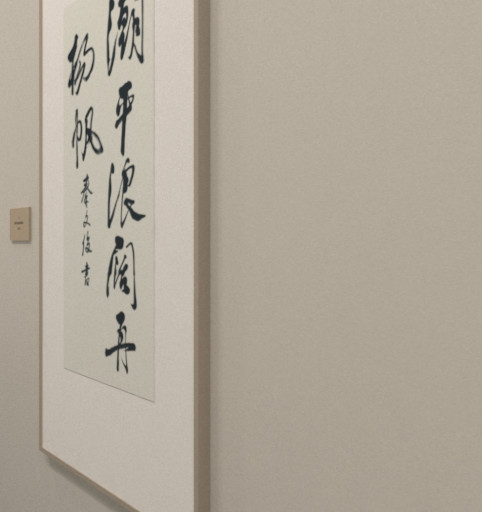 潮平浪阔再
杨帆
秦文俊书